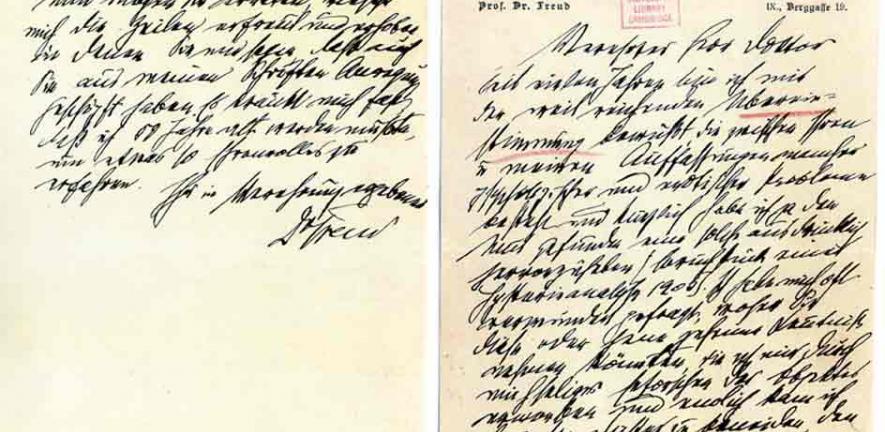 nun mögen Sie erraten, wie sehr
mich die Zeilen erfreut und erhoben,
in denen Sie mir sagen, daß auch
Sie aus meinen Schriften Anregung
geschöpft haben. Es kränkt mich fast,
daß ich 50 Jahre alt werden mußte,
um etwas so Ehrenvolles zu
erfahren.
Ihr in Verehrung ergebener
Dr Freud
Prof. Dr. Freud
LIBRARY
CAMBRIDGE
IX., Berggasse 19.
Verehrter Herr Doktor
Seit vielen Jahren bin ich mir
der weit reichenden Überein-
stimmung bewußt, die zwischen Ihren
u meinen Auffassungen mancher
psychologischer und erotischer Probleme
besteht, und kürzlich habe ich ja den
Mut gefunden eine solche ausdrücklich
hervorzuheben (Bruchstück einer
Hysterieanalyse 1905). Ich habe mich oft
verwundert gefragt, woher Sie
diese oder jene geheime Kenntniß
nehmen konnten, die ich mir durch
mühselige Erforschung des Objektes
erworben, und endlich kam ich
zu beneiden, den